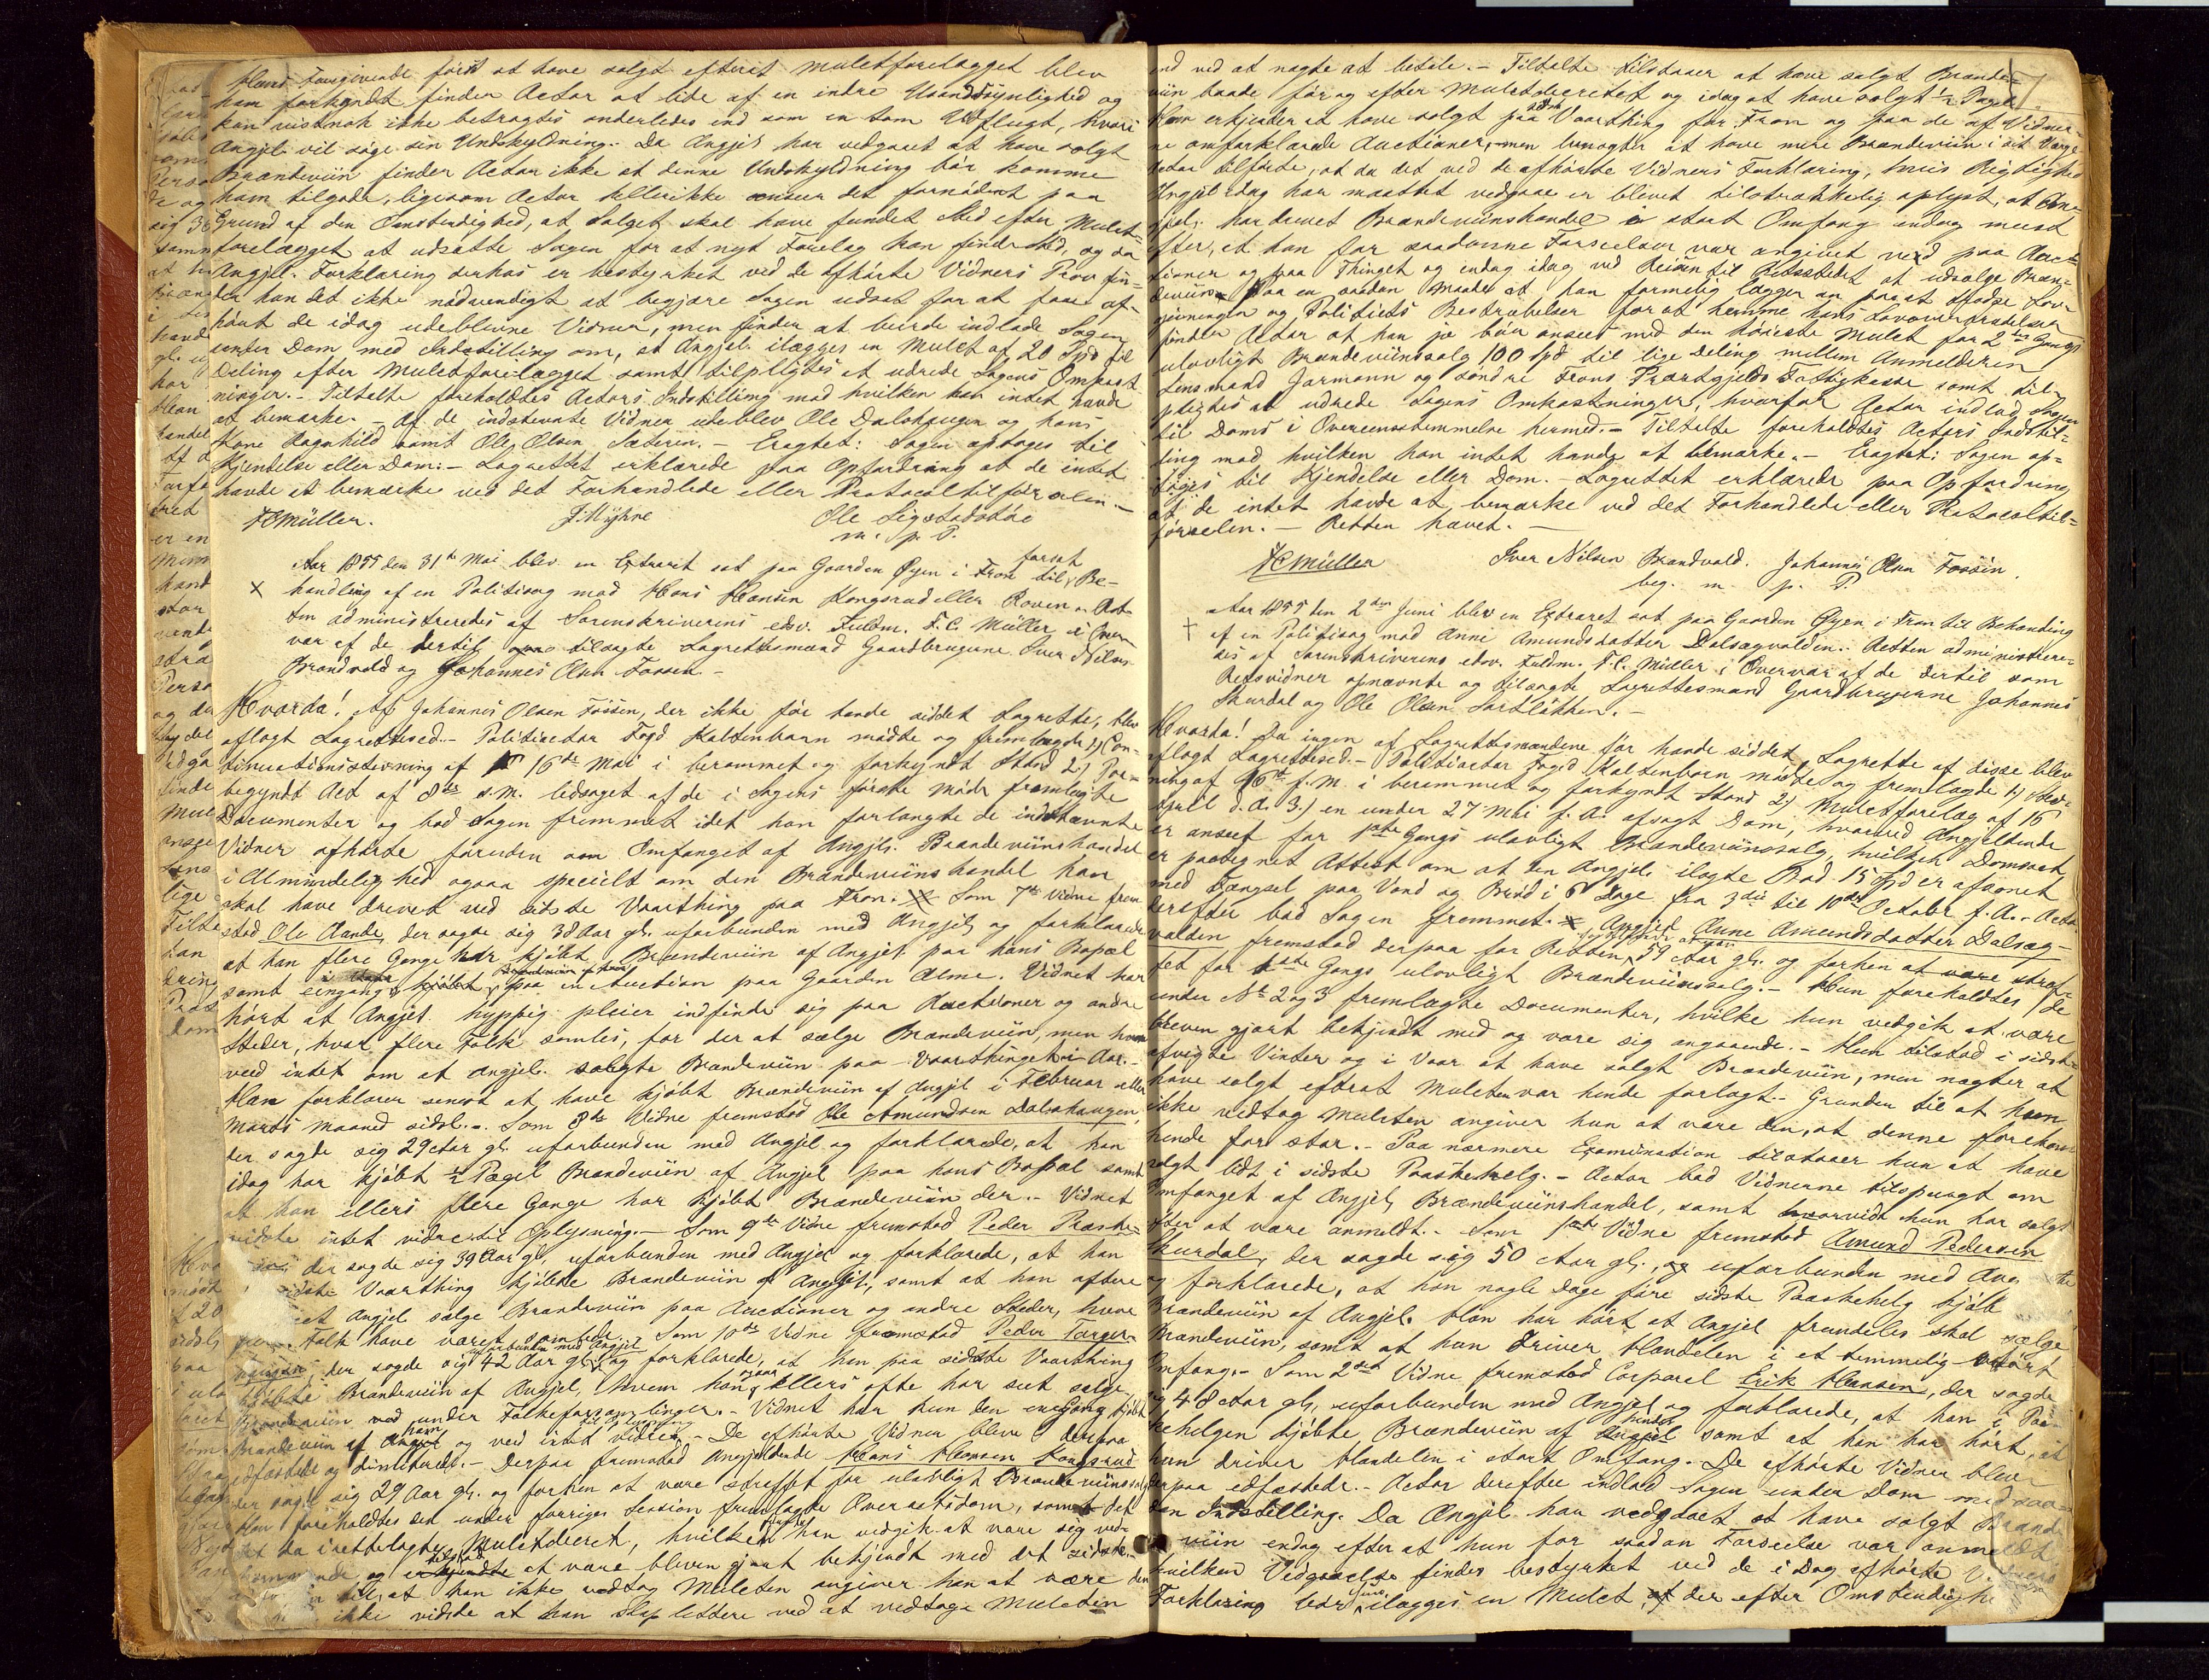 Hans Foregivende først at have solgt efterat Mulctforelægget blev
ham forkyndt finder Actor at lide af en indre Usandsynlighed og
kan vistnok ikke betragtes anderledes end som en tom Udflugt, hvori
Angjel. vil søge sin Undskyldning. Da Angjel. har vedgaaet at have solgt
Brændeviin finder Actor ikke at denne Undskyldning bør komme
ham tilgode, ligesom Actor hellerikke anseer det fornødent paa
Grund af den Omstændighed, at Salget skal have fundet Sted efter Mulct-
forelægget at udsætte Sagen for at nyt Forelæg kan finde Sted, og da
Angjel. Forklaring derhos er bestyrket ved de afhørte Vidners Prov fin-
der han det ikke nødvendigt at begjære Sagen udsat for at faae af-
hørt de idag udeblevne Vidner, men finder at burde indlade Sagen
under Dom med Indstilling om, at Angjel. ilægges en Mulct af 20 Spd til
Deling efter Mulctforelægget samt tilpligtes at udrede Sagens Omkost-
ninger. - Tiltalte foreholdtes Actors Indstilling mod hvilken han intet havde
at bemærke. - Af de indstevnte Vidner udeblev Ole Dalshaugen og hans
Kone Ragnhild samt Ole Olsen Sæteren. - Eragtet: Sagen optages til
Kjendelse eller Dom: - Lagrettet erklærede paa Opfordring at de intet
havde at bemærke ved det Forhandlede eller Protocoltilførselen. -
FCMüller. J. Myhre Ole Sigstadstøe
m. p. P.
Aar 1855 den 31te Mai blev en Extraret sat paa Gaarden Øyen i Fron til forsat Be-
handling af en Politisag mod Hans Hansen Kongsrud eller Roven. Ret-
ten administreredes af Sorenskriverens edsv. Fuldm. F. C. Müller i Over-
vær af de dertil opn tilsagte Lagrettesmænd Gaardbrugerne Iver Nilsen
Brandvold og Johannes Olsen Fossen. -
Hvorda! Af Johannes Olsen Fossen, der ikke før havde siddet Lagrette, blev
aflagt Lagrettesed. - Politiactor Foged Kaltenborn mødte og fremlagde 1) Con-
tinuationsstevning af 16de Mai i berammet og forkyndt Stand 2) Paa-
begyndt Act af 8de s. M. ledsaget af de i Sagens første Møde fremlagte
Documenter og bad Sagen fremmet idet han forlangte de indstævnte
Vidner afhørte foruden om Omfanget af Angjels. Brændeviinshandel
i Almindelighed ogsaa specielt om den Brændeviinshandel han
skal have drevet ved sidste Vaarthing paa Fron. Som 7de Vidne frem-
stod Ole Aande, der sagde sig 38 Aar gl. uforbunden med Angjel. og forklarede
at han flere Gange har kjøbt Brændeviin af Angjel. paa hans Bopæl
samt eengang kjøbt Brændeviin af ham paa en Auction paa Gaarden Alme. Vidnet har
hørt at Angjel. hyppig pleier indfinde sig paa Auctioner og andre
Steder, hvor flere Folk samles, for der at sælge Brændeviin, men han
veed intet om at Angjel. solgte Brændeviin paa Vaarthinget i Aar. -
Han forklarer senest at have kjøbt Brændeviin af Angjel i Februar eller
Marts Maaned sidsl. - Som 8de Vidne fremstod Ole Amundsen Dalshaugen,
der sagde sig 29 Aar gl. uforbunden med Angjel. og forklarede, at han
idag har kjøbt 1/2 Pægel Brændeviin af Angjel paa hans Bopæl samt
at han ellers flere Gange har kjøbt Brændeviin der. - Vidnet
vidste intet videre til Oplysning. - Som 9de Vidne fremstod Peder Præste-
der sagde sig 39 Aar gl., uforbunden med Angjel og forklarede, at han
sidste Vaarthing kjøbte Brændeviin af Angjel., samt at han oftere
seet Angjel sælge Brændeviin paa Auctioner og andre Steder, hvor
Folk have været samlede. Som 10de Vidne fremstod Peder Torger-
der sagde sig 42 Aar gl. uforbunden med Angjel og forklarede, at han paa sidste Vaarthing
kjøbte Brændeviin af Angjel, hvem han ogsaa ellers ofte har seet sælge
Brændeviin ved under Folkeforsamlinger. - Vidnet har kun den eengang kjøbt
Brændeviin af ham og ved intet videre til Oplysning. - De afhørte Vidner bleve derpaa
edfæstede og dimitterede. - Derpaa fremstod Angjeldende Hans Hansen Kongsrud
der sagde sig 29 Aar gl. og forhen at være straffet for ulovligt Brændeviinssalg
Han foreholdtes den under forrige Session fremlagte Overretsdom, samt det
da irettelagte Mulctdecret, hvilken han vedgik at være sig ved-
kommende og tilstod at være bleven gjort bekjendt med det sidste.
til, at han ikke vedtog Mulcten angiver han at være den
ikke vidste at han slap lettere ved at vedtage Mulcten
end ved at nægte at betale. - Tiltalte tilstaaer at have solgt Brænde-
viin baade før og efter Mulctdecretet og idag at have solgt 1/2 Pægel
Han erkjender at have solgt paa sidste Vaarthing for Fron og paa de af Vidner-
ne omforklarede Auctioner, men benegter at have mere Brændeviin i sit Værge
Actor tilførte, at da det ved de afhørte Vidners Forklaring, hvis Rigtighed
Angjel idag har maattet vedgaae er blevet tilstrækkelig oplyst, at An-
gjel. har drevet Brændeviinshandel i stort Omfang endog mest
efter, at han for saadanne Forseelser var angivet ved paa Auc-
tioner og paa Thinget og endog idag ved Reisen til Retsstedet at udsælge Bræn-
deviin paa en saadan Maade at han formelig lægger an paa at spodse Lov-
givningen og Politiets Bestræbelser for at hemme hans Lovovertrædelser
finder Actor at han jo bør ansees med den høieste Mulct for 2den Gangs
ulovligt Brændeviinssalg 100 Spd til lige Deling mellem Anmelderen
Lensmand Jormann og søndre Frons Præstegjelds Fattigkasse samt til-
pligtes at udrede Sagens Omkostninger, hvorfor Actor indlod Sagen
til Doms i Overeensstemmelse hermed. - Tiltalte foreholdtes Actors Indstil-
ling mod hvilken han intet havde at bemærke. - Eragtet: Sagen op-
tages til Kjendelse eller Dom. - Lagrettet erklærede paa Opfordring
at de intet havde at bemærke ved det Forhandlede eller Protocoltil-
førselen. - Retten hævet. -
FCMüller Iver Nilsen Brandvold. Johannes Olsen Fossen.
beg. m. p. P.
Aar 1855 den 2den Juni blev en Extraret sat paa Gaarden Øyen i Fron til Behandling
af en Politisag mod Anne Amundsdatter Dalsægvolden. Retten administrere-
des af Sorenskriverens edsv. Fuldm. F. C. Müller i Overvær af de dertil som
Retsvidner opnævnte og tilsagte Lagrettesmænd Gaardbrugerne Johannes
Skurdal og Ole Olsen Sorkløkken. -
Hvorda! Da ingen af Lagrettesmændene før havde siddet Lagrette af disse blev
aflagt Lagrettesed. - Politiactor Foged Kaltenborn mødte og fremlagde 1) Stev-
ning af 16de f. M. i berammet og forkyndt Stand 2) Mulctforelæg af 16
April d. A. 3) en under 27 Mai f. A. afsagt Dom, hvorved Angjeldende
er anseet for 1ste Gangs ulovligt Brændeviinssalg, hvilken Domsact
er paategnet Attest om at den Angjel. ilagte Bod 15 Spd er afsonet
med Fængsel paa Vand og Brød i 6 Dage fra 3die til 10de October f. A. - Actor
derefter bad Sagen fremmet. Angjel Anne Amundsdatter Dalsæg-
valden fremstod derpaa for Retten, 59 Aar gl. og forhen at være straf-
fet for 1ste Gangs ulovligt Brændeviinssalg. - Hun foreholdtes de
under No 2 og 3 fremlagte Documenter, hvilke hun vedgik at være
bleven gjort bekjendt med og være sig angaaende. - Hun tilstod i sidst-
afvigte Vinter og i Vaar at have solgt Brændeviin, men nægter at
have solgt efterat Mulcten var hende forlagt. - Grunden til at hun
ikke vedtog Mulcten angiver hun at være den, at denne forekom
hende for stor. - Paa nærmere Examination tilstaaer hun at have
solgt lidt i sidste Paaskehelg. - Actor bad Vidnerne tilspurgt om
Omfanget af Angjels Brændeviinshandel, samt hvorvidt hun har solgt
efter at være anmeldt. - Som 1ste Vidne fremstod Amund Pedersen
Skurdal, der sagde sig 50 Aar gl., og uforbunden med Ang
og forklarede, at han nogle Dage føre sidste Paaskehelg kjøb
Brændeviin af Angjel. Han har hørt at Angjel fremdeles skal sælge
Brændeviin, samt at hun driver Handelen i et temmelig stort
Omfang. - Som 2det Vidne fremstod Corporal Erik Hansen, der sagde
sig 48 Aar gl., uforbunden med Angjel og forklarede, at han i Paa-
skehelgen kjøbte Brændeviin af hende samt at han har hørt, at
hun driver Handelen i stort Omfang. De afhørte Vidner blev
derpaa edfæstede. - Actor derefter indlod Sagen under Dom med saa-
dan Indstilling. Da Angjel. har vedgaaet at have solgt Brænde-
viin endog efter at hun for saadan Forseelse var anmeldt
hvilken Vedgaaelse findes bestyrket ved de i Dag afhørte Vidners
Forklaring bør hun ilægges en Mulct af der efter Omstændighe